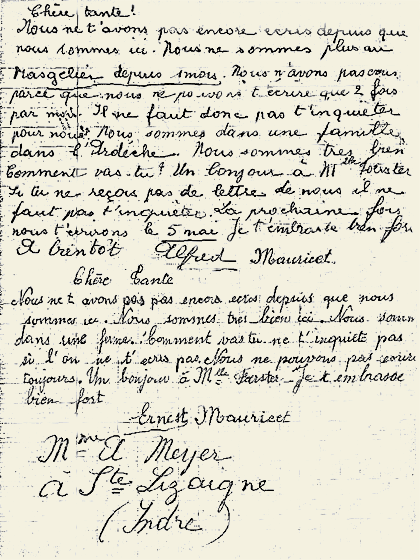 Chère tante!
Nous ne t'avons pas encore ecris depuis que
nous sommes ici. Nous ne sommes plus au
Masgelier depuis 1 mois. Nous n'avons pas
parce que nous ne pouvons t'ecrire que 2 fois
par mois. Il ne faut donc pas t'inquiéter
pour nous. Nous sommes dans une famille
dans l'Ardéche. Nous sommes tres bien
Comment vas-tu? Un bonjour à Mlle
Si tu ne reçois pas de lettre de nous il ne
faut pas t'inquiéter. La prochaine fois
nous t'ecrirons le 5 mai Je t'embrasse bien fort
A bientôt Alfred Mauricet.
Chère Tante
Nous ne t avons pas pas encore ecris depuis que nous
sommes ici. Nous sommes très bien ici. Nous somm
dans une ferme. Comment vas tu ne t'inquiete pas
si l'on ne t'ecris pas. Nous ne pouvons pas ecrire
toujours. Un bonjour à Mlle Je t embrasse
bien fort
Ernest Mauricet
Mme A Meyer
à Ste Lizaigne
(Indre)